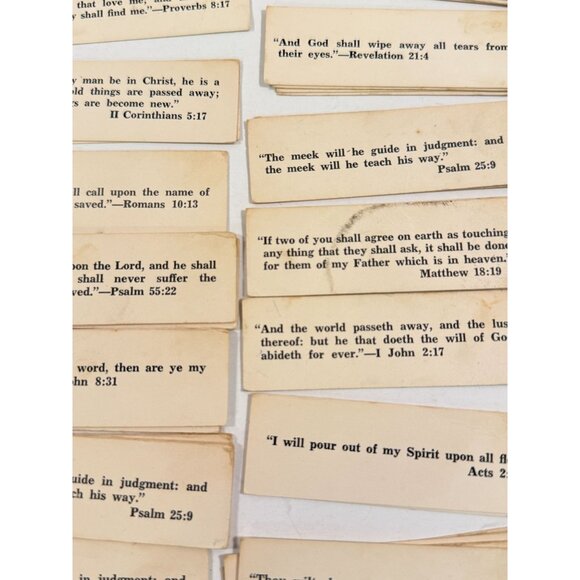 that love me; and
y shall find me."—Proverbs 8:17
y man be in Christ, he is a
old things are passed away;
gs are become new."
II Corinthians 5:17
ll call upon the name of
saved."—Romans 10:13
pon the Lord, and he shall
shall never suffer the
ved."—Psalm 55:22
word, then are ye my
ohn 8:31
uide in judgment: and
ch his way."
Psalm 25:9
in judgment: and
"And God shall wipe away all tears from
their eyes."—Revelation 21:4
"The meek will he guide in judgment: and
the meek will he teach his way."
Psalm 25:9
"If two of you shall agree on earth as touching
any thing that they shall ask, it shall be done
for them of my Father which is in heaven."
Matthew 18:19
"And the world passeth away, and the lus
thereof: but he that doeth the will of Go
abideth for ever."—I John 2:17
"I will pour out of my Spirit upon all fl
Acts 2:
"Thou